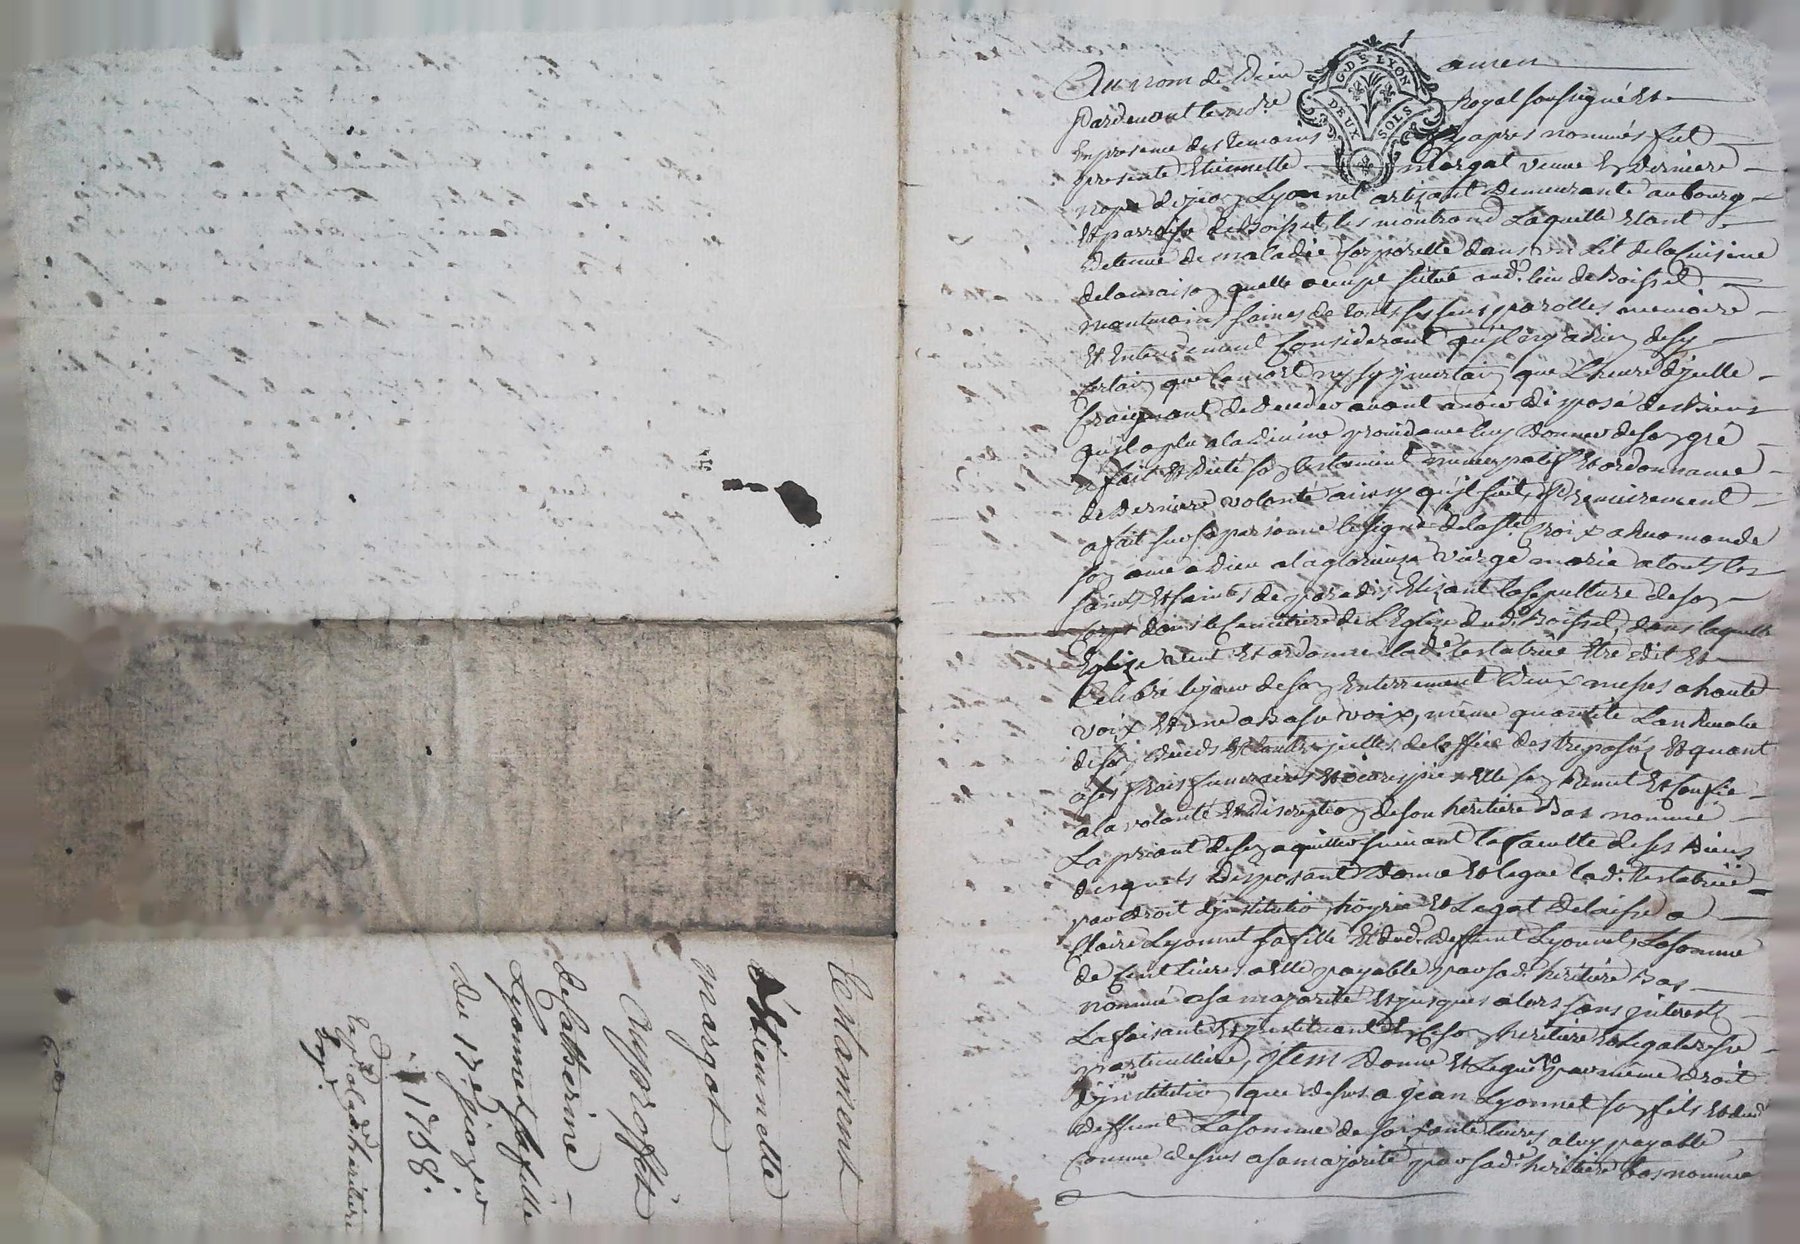 Testament
d'Etiennette
margot
Au proffit
de Catherine
Lyonnet sa fille
du 17e janvier
1758.
G. DE LYON
DEUX SOLS
Au nom de Dieu amen
Pardevant le no.re Royal soussigné Et
En presence des temoins cy apres nommés fut
presente Etiennette Margot veuve En derniere
nopce de Lyonnet artisant Demeurante au bourg
Et parroisse de Boisset les montrond Laquelle Etant
detenue de maladie Corporelle dans un Lit de la Cuisine
de la maison quelle occupe scitué aud. lieu de Boisset
neantmoins saines de touts ses sens parolles memoire
Et Entendement Considerant qu'il n'y a rien de sy
certain que la mort ny sy jncertain que L'heure d'jcelle
Craignant de deceder avant avoir disposé des biens
qu'il a plu a la divine providance luy donner de son gré
a fait Et dicté son testament nuncupatif Et ordonnance
de derniere volonté ainsy qu'il suit, Premierement
a fait sur sa personne le signe de la Ste. Croix a Recomandé
son ame a Dieu a la glorieuse vierge marie a touts les
saints Et saintes de paradis Elizant la sepulture de son
Corps dans le Cimetiere de L'Eglize dud. Boisset, dans laquelle
Eglize veut Et ordonne lad.e testatrice Etre dit Et
Celebré le jour de son Enterrement deux messes a haute
voix Et une a Basse voix, même quantité Lan Revolu
de son deceds Et toutes jcelles de loffice des trepassés Et quant
a ses frais funeraires Et œuvres pies Elle s'en Remet Et Confie
a la volonté Et discretion de son heritiere Bas nommée
La priant de s'en aquitter suivant la faculté de ses Biens
desquels disposant donne Et legue lad.e testatrice
par droit d'jnstitution hoyrie Et Legat delaisse a
Claire Lyonnet sa fille Et dud. deffunt Lyonnet, La somme
de Cent livres a Elle payable par sad. heritiere Bas
nommée a sa majorité Et jusques alors sans jnterets
La faisante Et jnstituant En Ce son heritiere Et Legateresse
particulliere, jtem donne Et Legue par même droit
d'jnstitution que dessus a jean Lyonnet son fils Et dud.
deffunt La somme de soixante livres a luy payable
Comme dessus a sa majorité par sad.e heritiere bas nommée